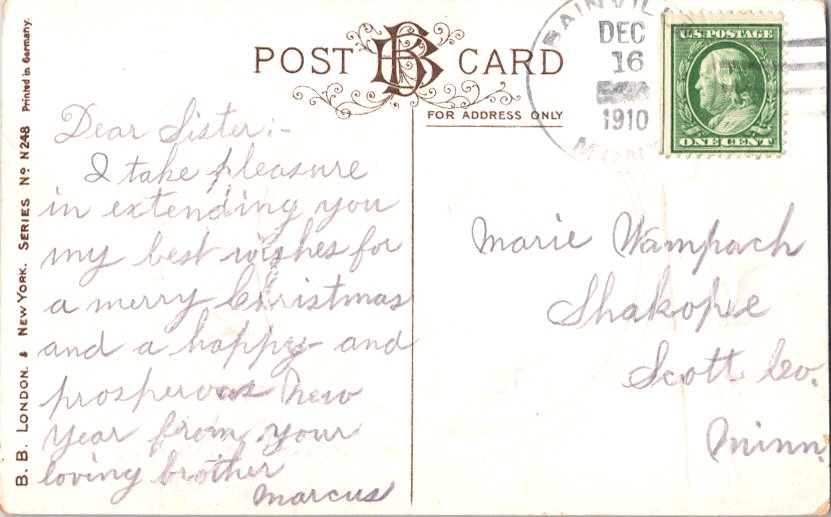 B. B. LONDON. & NEW YORK. SERIES No N248 Printed in Germany.
POST CARD
FOR ADDRESS ONLY
BAINVILLE
DEC
16
1910
MONT
U.S. POSTAGE
ONE CENT
Dear Sister:-
I take pleasure
in extending you
my best wishes for
a merry Christmas
and a happy and
prosperous New
Year from your
loving brother
Marcus
Marie Wampach
Shakopee
Scott Co.
Minn.